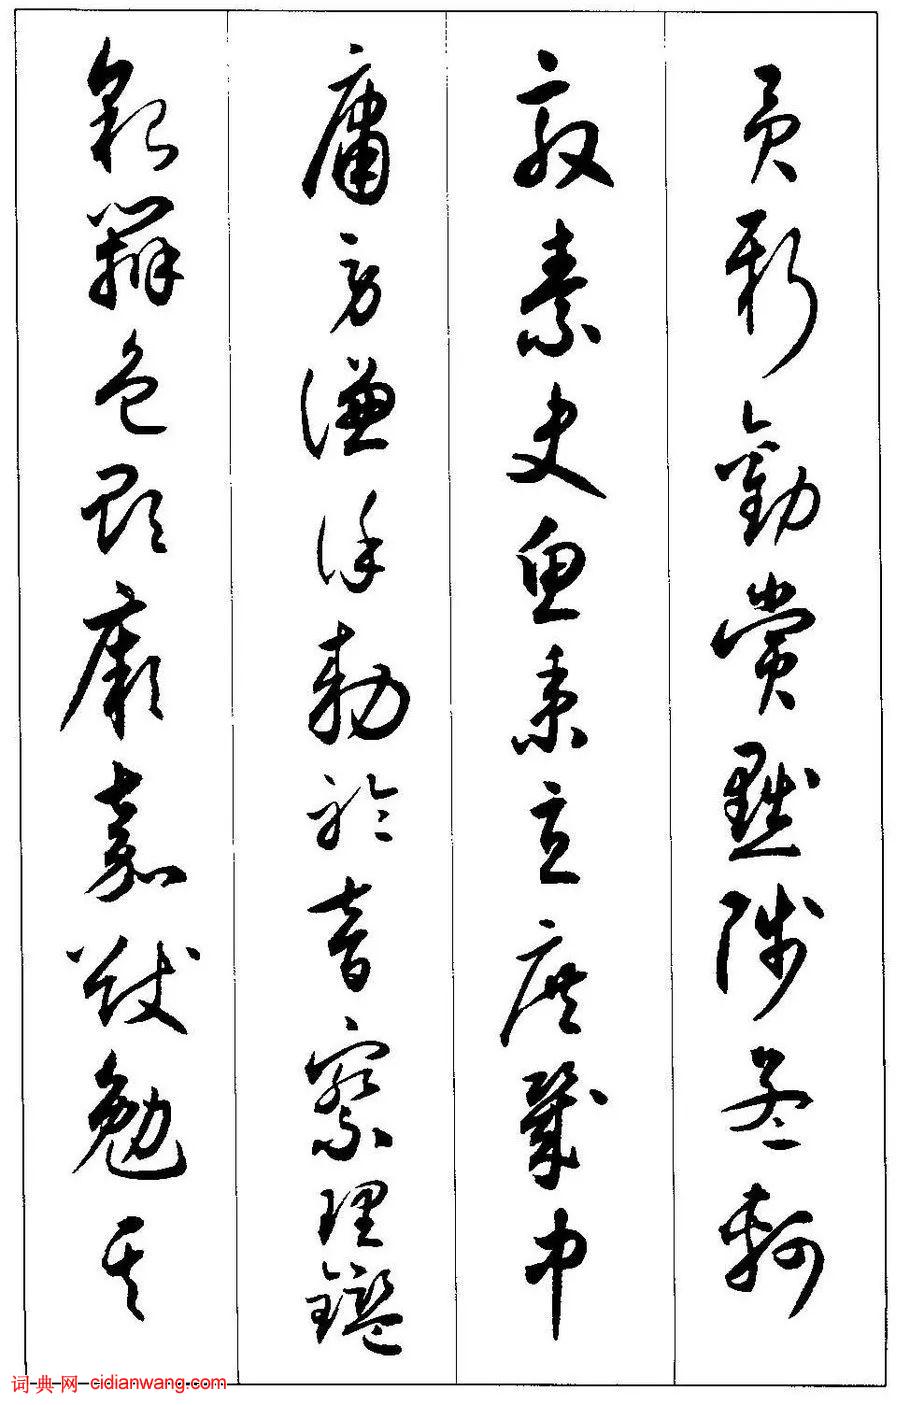 貢新勸賞黜陟孟軻
敦素史魚秉直庶幾中
庸勞謙謹勅聆音察理鑑
貌辨色貽厥嘉猷勉其
词典网 cidianwang.com